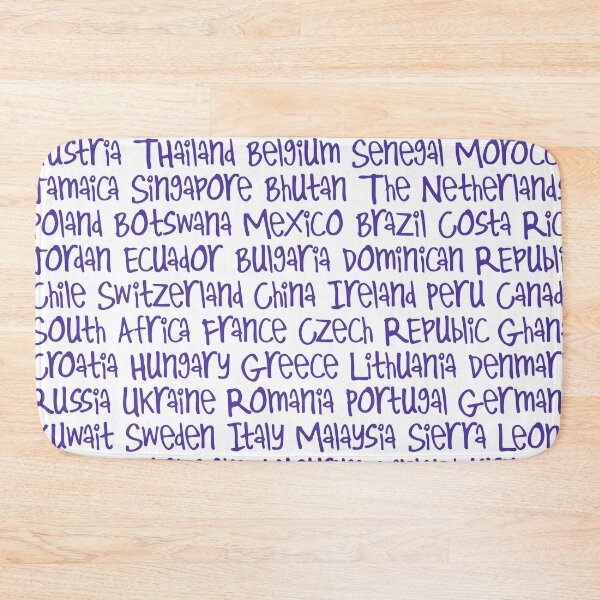 ustria Thailand Belgium Senegal Morocc
Jamaica Singapore Bhutan The Netherlands
Poland Botswana Mexico Brazil Costa Ric
Jordan Ecuador Bulgaria Dominican Republi
Chile Switzerland China Ireland Peru Canad
South Africa France Czech Republic Ghan
Croatia Hungary Greece Lithuania Denmar
Russia Ukraine Romania Portugal German
Kuwait Sweden Italy Malaysia Sierra Leon